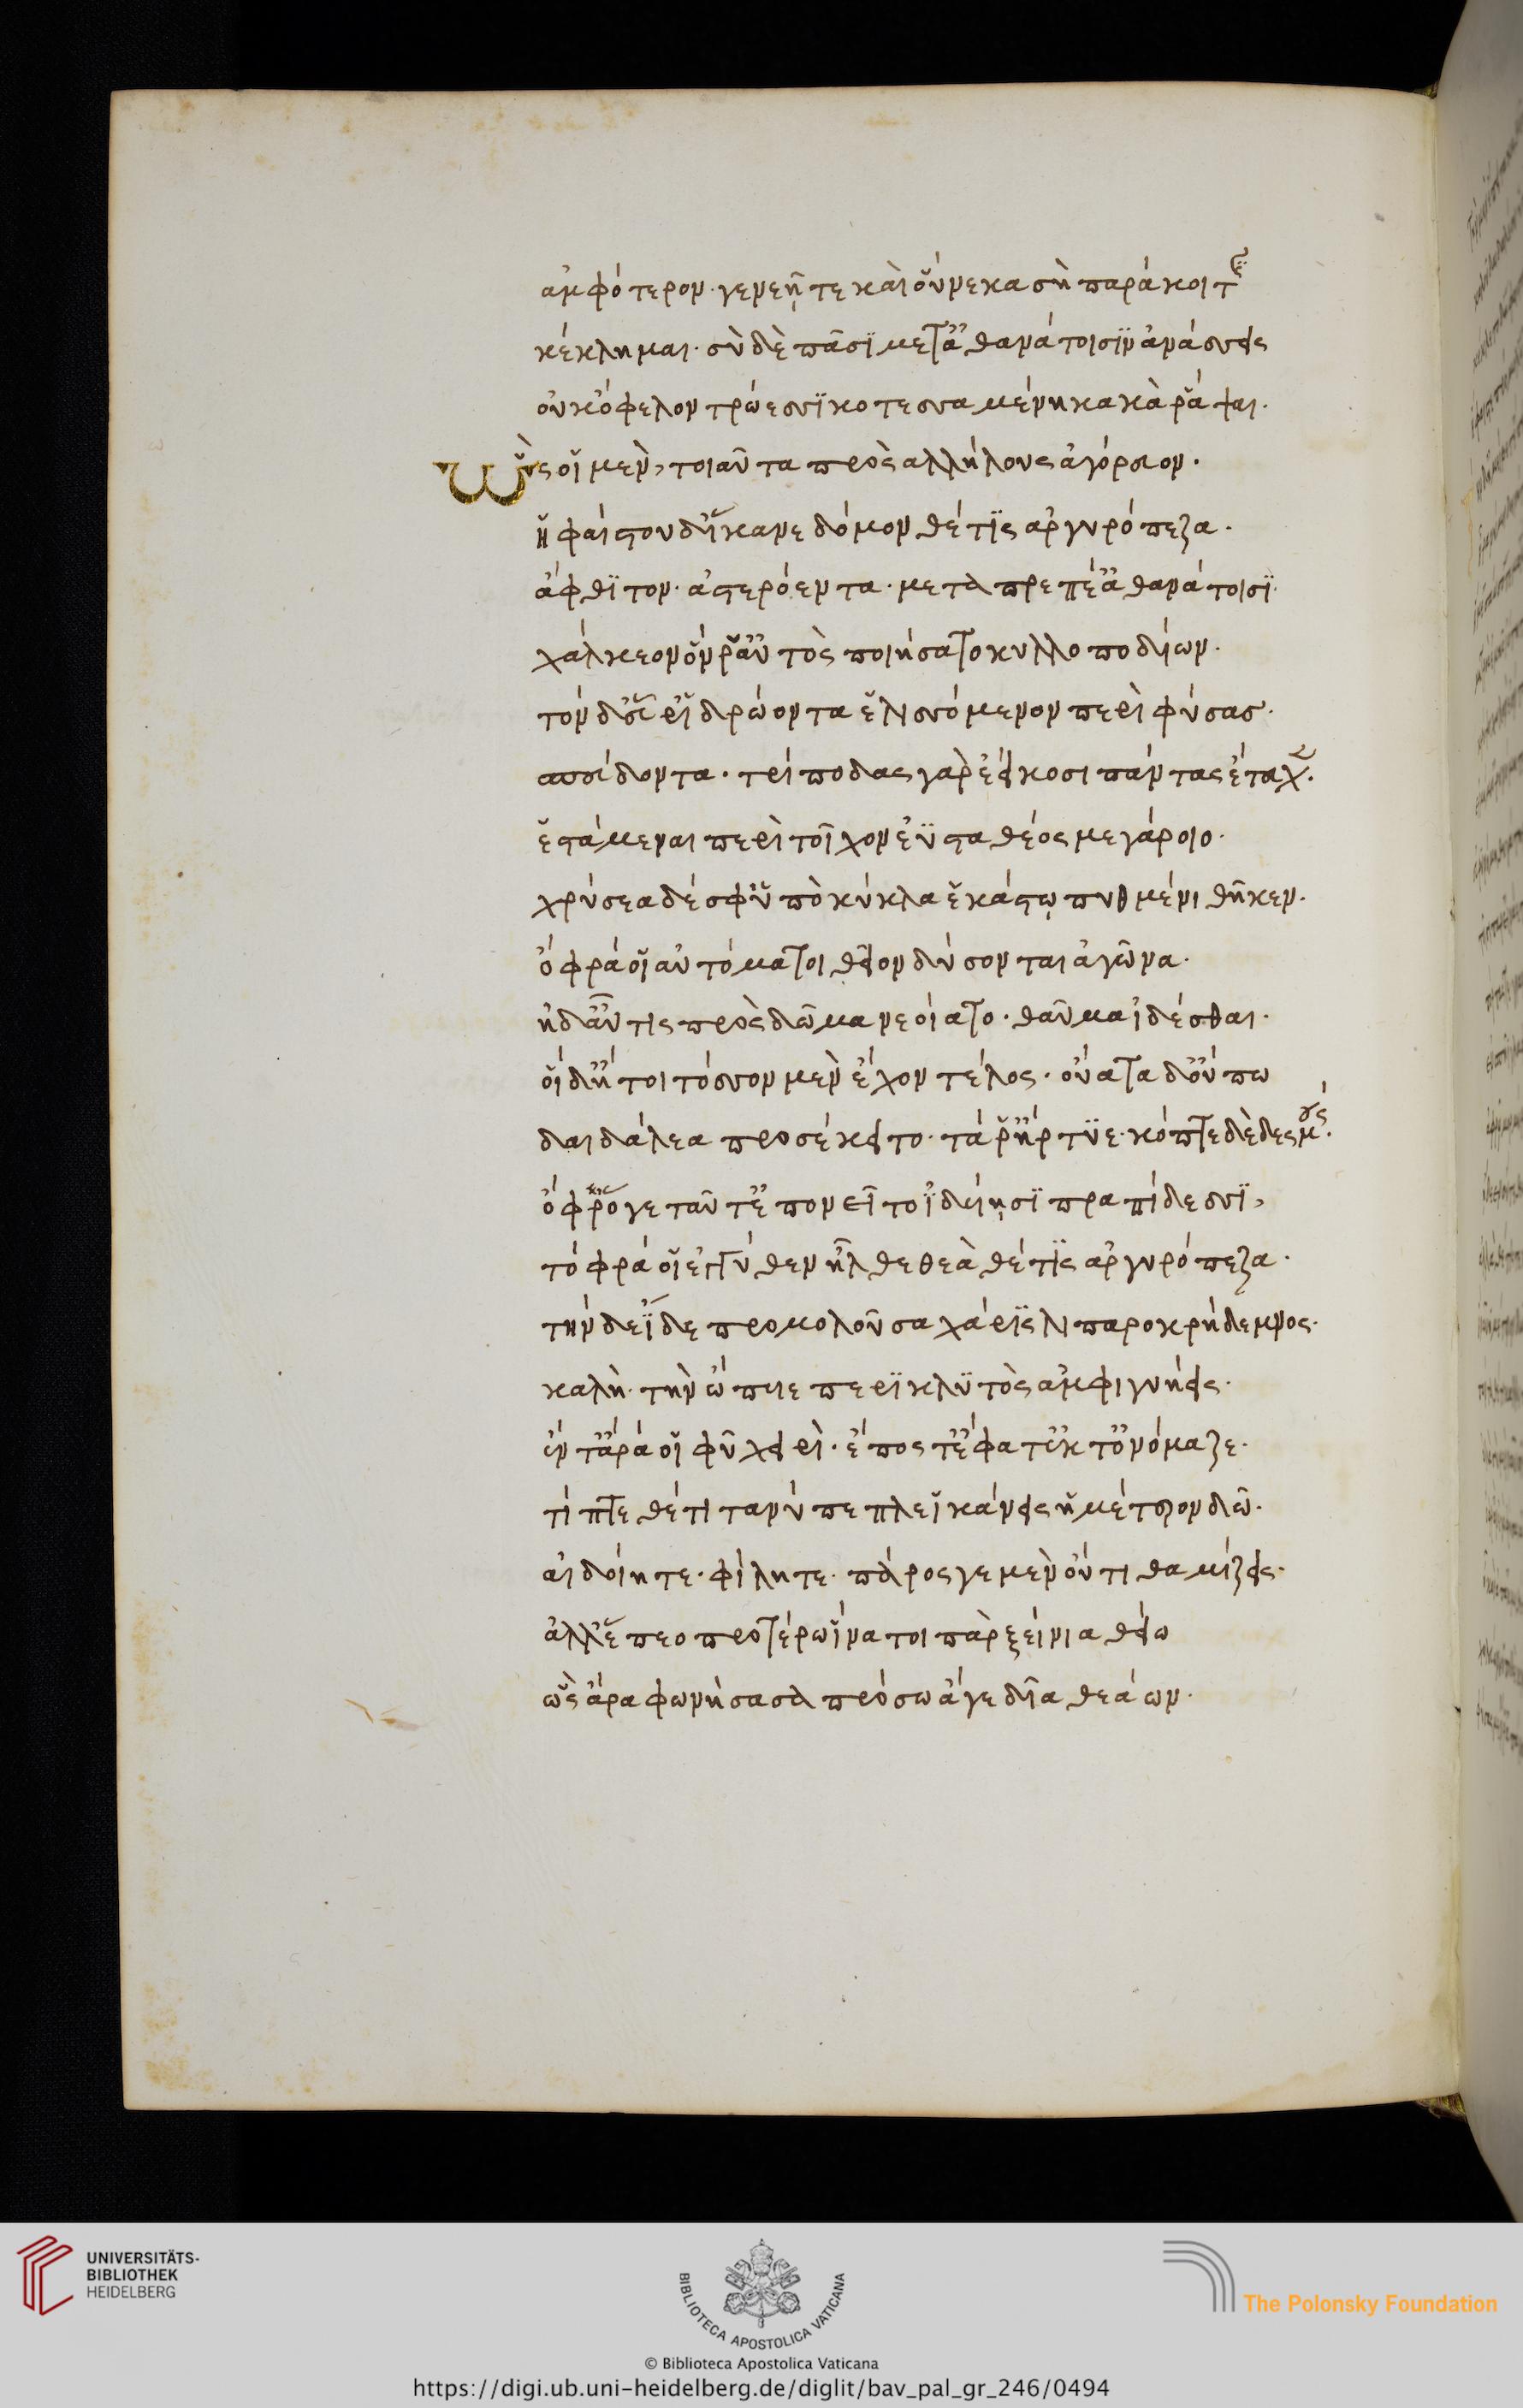 ἀμφότερον· γενεῇ τε καὶ οὕνεκα σὴ παράκοιτις
κέκλημαι· σὺ δὲ πᾶσϊ μετ' ἀθανάτοισϊν ἀνάσσεις
οὐκ ὄφελον τρώεσσϊ κοτεσσαμένη κακὰ ῥάψαι·
Ὣς οἳ μὲν, τοιαῦτα πρὸς ἀλλήλους ἀγόρευον·
ἡφαίστου δ' ἵκανε δόμον θέτϊς ἀργυρόπεζα·
ἄφθϊτον· ἀστερόεντα· μεταπρεπέ' ἀθανάτοισϊ·
χάλκεον ὅν ῥ' αὐτὸς ποιήσατο κυλλοποδίων·
τὸν δ' εὗρ' ἱδρώοντα ἑλισσόμενον περὶ φύσας·
σπεύδοντα· τρίποδας γὰρ ἐείκοσι πάντας ἔτευχεν·
ἑστάμεναι περὶ τοῖχον ἐϋσταθέος μεγάροιο·
χρύσεα δέ σφ' ὑπὸ κύκλα ἑκάστῳ πυθμένι θῆκεν·
ὄφρά οἱ αὐτόματοι θεῖον δύσονται ἀγῶνα·
ἠδ' αὖτις πρὸς δῶμα νεοίατο· θαῦμα ἰδέσθαι·
οἳ δ' ἤτοι τόσσον μὲν ἔχον τέλος· οὔατα δ' οὔπω
δαιδάλεα προσέκειτο· τά ῥ' ἤρτϋε· κόπτε δὲ δεσμούς·
ὄφρ' ὅγε ταῦτ' ἐπονεῖτο ἰδυίησϊ πραπίδεσσϊ,
τόφρά οἱ ἐγγύθεν ἦλθε θεὰ θέτϊς ἀργυρόπεζα·
τὴν δ' ἴδε προμολοῦσα χάρϊς λιπαροκρήδεμνος·
καλὴ· τὴν ὤπυιε περϊκλϋτὸς ἀμφιγυήεις·
ἔν τ' ἄρά οἱ φῦ χειρὶ· ἔπος τ' ἔφατ' ἔκ τ' ὀνόμαζε·
τίπτε θέτι τανύπεπλε ἱκάνεις ἡμέτερον δῶ·
αἰδοίη τε· φίλη τε· πάρος γε μὲν οὔτι θαμίζεις·
ἀλλ' ἕπεο προτέρω ἵνα τοι πὰρ ξείνια θείω
ὣς ἄρα φωνήσασα πρόσω ἄγε δῖα θεάων·
UNIVERSITÄTS-
BIBLIOTHEK
HEIDELBERG
BIBLIOTECA APOSTOLICA VATICANA
The Polonsky Foundation
© Biblioteca Apostolica Vaticana
https://digi.ub.uni-heidelberg.de/diglit/bav_pal_gr_246/0494